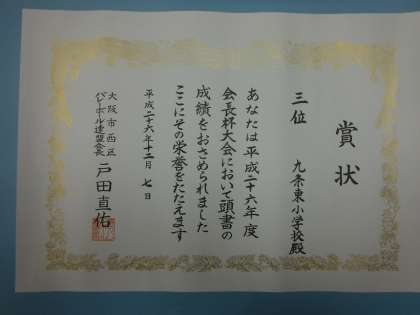 賞状
三位
九条東小学校殿
あなたは平成二十六年度
会長杯大会において頭書の
成績をおさめられました
ここにその栄誉をたたえます
平成二十六年十二月七日
大阪市西区
バレーボール連盟会長
戸田直佑